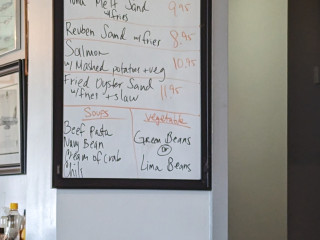 Tuna Melt Sand 9.95
w/fries
Reuben Sand w/frier 8.95
Salmon 10.95
w/ Mashed potatoes + veg
Fried Oyster Sand 11.95
w/fries + slaw
Soups
Beef Pasta
Navy Bean
Cream of Crab
Chili
Vegetable
Green Beans
or
Lima Beans